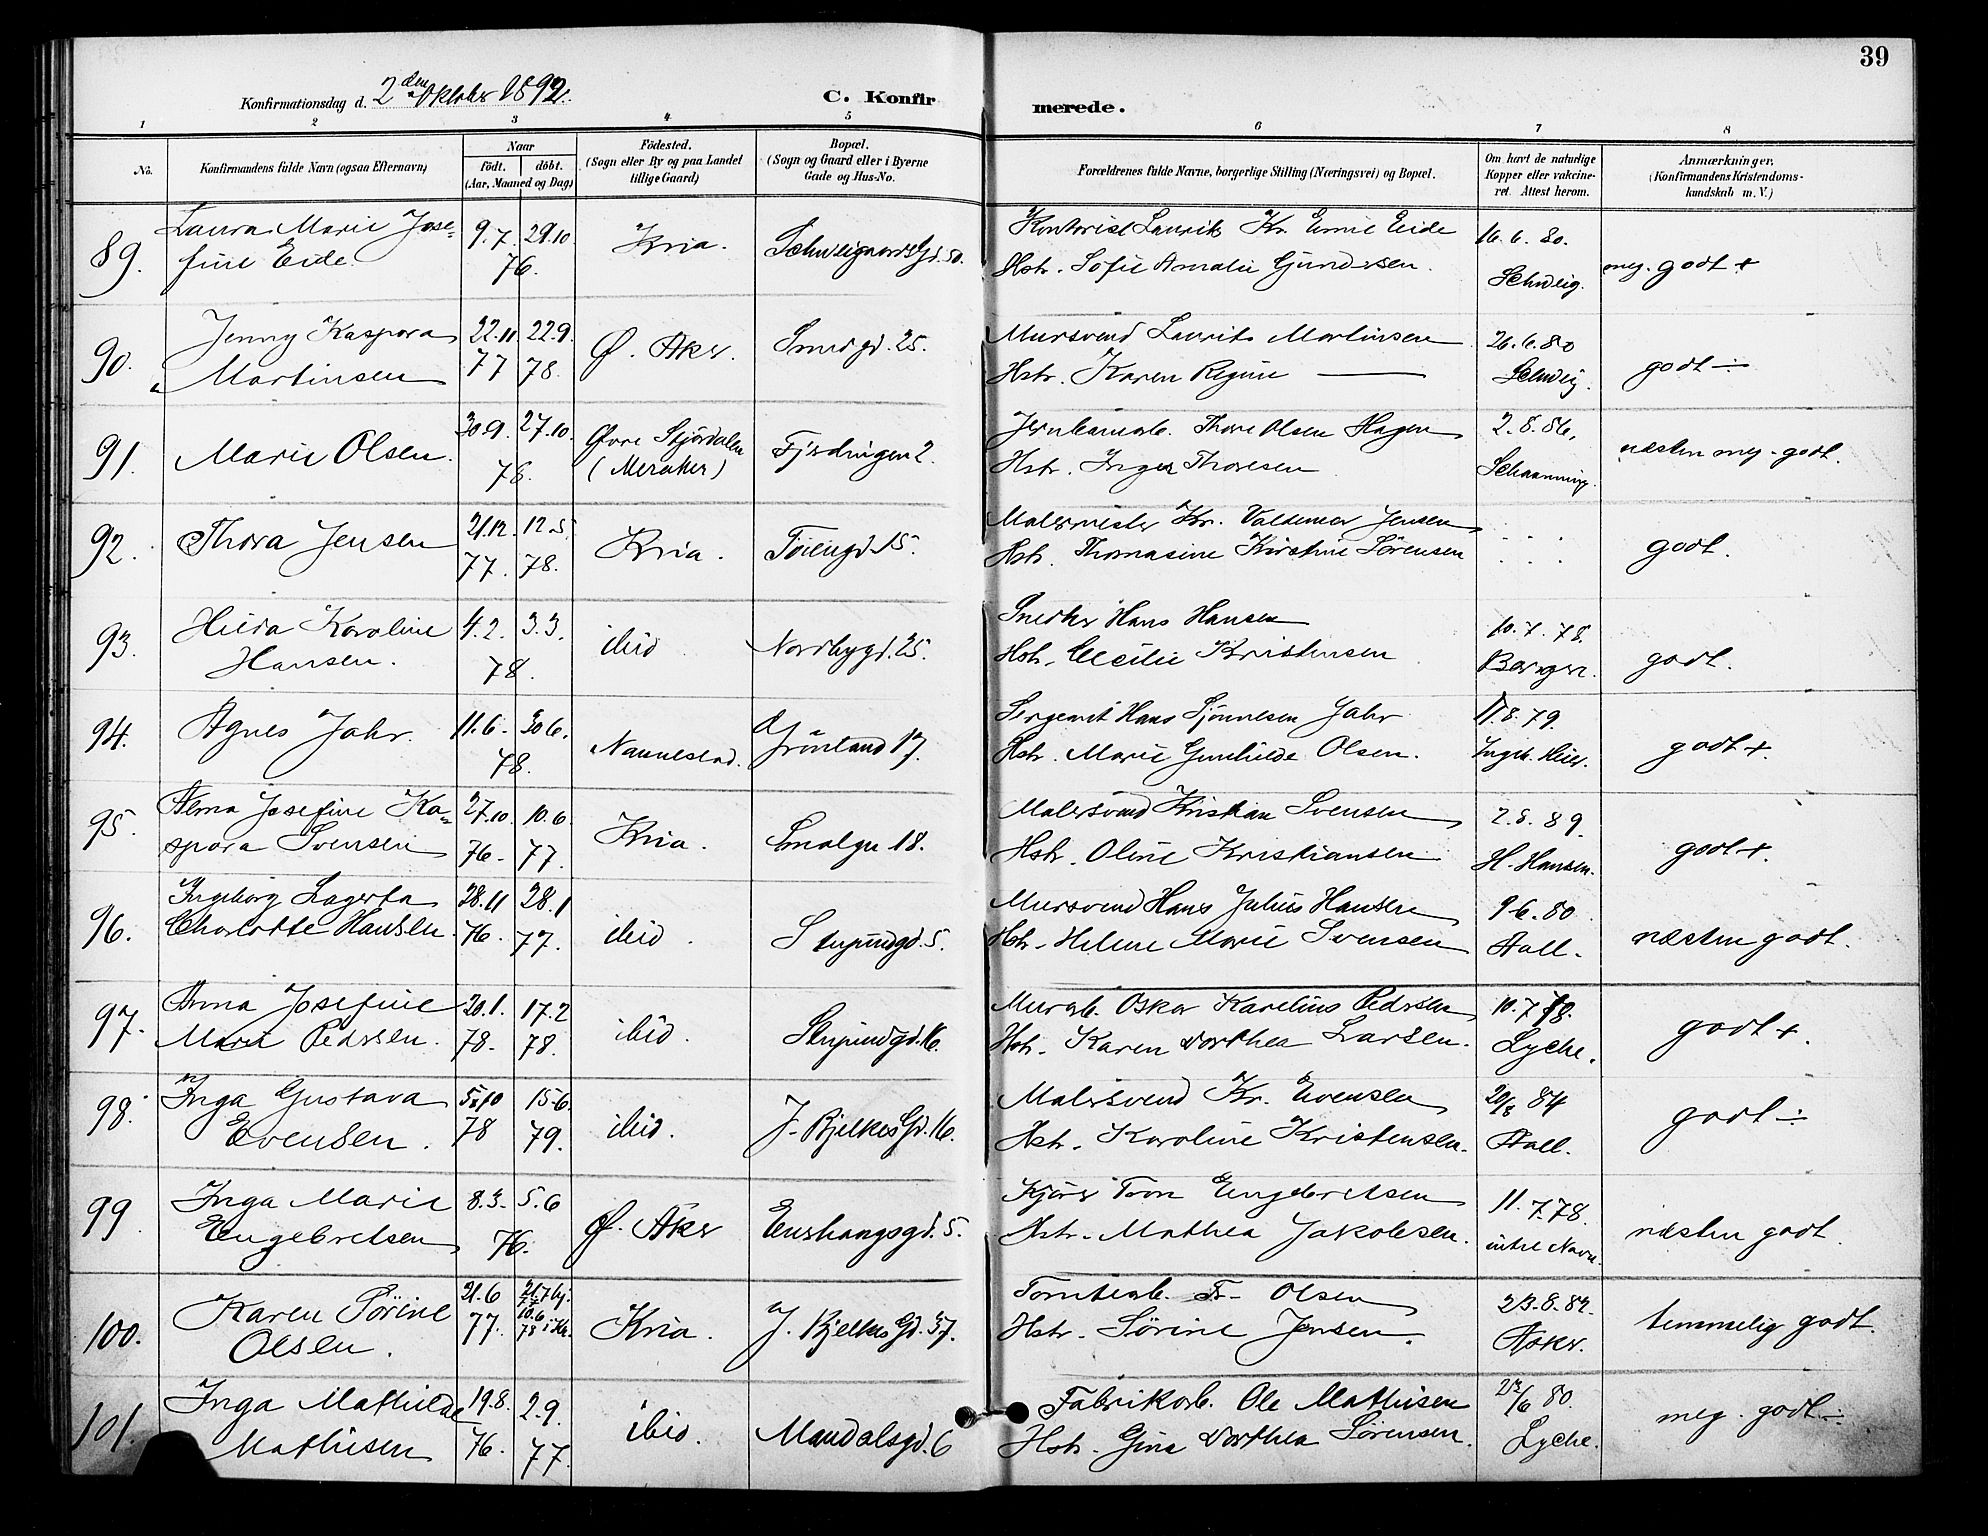 39
Konfirmationsdag d. 2den Oktober 1892.
C. Konfirmerede.
1 2 3 4 5 6 7 8
No.
Konfirmandens fulde Navn (ogsaa Efternavn)
Naar
født. døbt.
(Aar, Maaned og Dag)
Fødested.
(Sogn eller By og paa Landet
tillige Gaard)
Bopæl.
(Sogn og Gaard eller i Byerne
Gade og Hus-No.
Forældrenes fulde Navne, borgerlige Stilling (Næringsvei) og Bopæl.
Om havt de naturlige
Kopper eller vakcine-
ret. Attest herom.
Anmærkninger.
(Konfirmandens Kristendoms-
kundskab m. V.)
89. Laura Marie Jose= 9.7. 29.10. Kria. Schweigaards Gd. 50. Kontorist Laurits Kr. Emil Eide 16.6.80.
fine Eide. 76. Hstr. Sofie Amalie Gundersen. Schweig. meg. godt +
90. Jenny Kaspara 22.11 22.9. Ø. Aker. Smedgd. 25. Mursvend Laurits Martinsen 26.6.80
Martinsen 77 78. Hstr. Karen Regine — Schweig. godt ÷
91. Marie Olsen. 30.9. 27.10. Øvre Stjørdalen Fjerdingen 2. Jernbanearb. Thore Olsen Hagen 2.8.86.
78. (Meraker) Hstr. Inger Thoresen Schanning. næsten meg. godt.
92. Thora Jensen 21.12. 12.5. Kria. Töiengd. 15. Malermester Kr. Valdemar Jensen . . .
77. 78. Hstr. Thomasine Kirstine Sørensen . . . godt.
93. Hilda Karoline 4.2. 3.3. ibid. Nordbygd. 25. Snedker Hans Hansen 10.7.78.
Hansen. 78. Hstr. Cecilie Kristensen Berger. godt.
94. Agnes Jahr. 11.6. 30.6. Nannestad. Grönland 17. Sergeant Hans Jahr 11.8.79.
78. Hstr. Marie Gunhilde Olsen. godt +.
95. Alma Josefine Ka= 27.10. 10.6. Kria. Smalgn 18. Malersvend Kristian Svensen 2.8.89.
spara Svensen 76. 77. Hstr. Oline Kristiansen H. Hansen. godt +.
96. Ingeborg Lagerta 28.11 28.1 ibid. Stupindgd. 5. Mursvend Hans Julius Hansen 9.6.80
Charlotte Hansen. 76. 77. Hstr. Helene Marie Svensen Aall. næsten godt.
97. Anna Josefine 20.1. 17.2 ibid. Stupindgd. 16. Murarb. Oskar Karelius Pedersen 10.7.78.
Marie Pedersen. 78. 78. Hstr. Karen Dorthea Larsen. Lyche. godt +.
98. Inga Gustava 5.10 15.6. ibid. J. Bjelkes Gd. 16. Malersvend Kr. Evensen 20/8 84
Evensen. 78 79. Hstr. Karoline Kristensen. Aall. godt ÷
99. Inga Marie 8.3. 5.6 Ø. Aker Enerhaugsgd. 5. Kjører Engebretsen 11.7.78.
Engebretsen 76. Hstr. Mathea Jakobsen. intet Navn. næsten godt.
100. Karen Sörine 21.6 21.7 hj. Kria. J. Bjelkes Gd. 37. Tomtearb. Fr. Olsen 23.8.82.
Olsen. 77. 10.6 78 i K. Hstr. Sörine Jensen. Asker. temmelig godt.
101. Inga Mathilde 19.8. 2.9. ibid. Mandalsgd. 6 Fabrikarb. Ole Mathisen /6 80.
Mathisen 76. 77. Hstr. Gina Dorthea Sörensen. Lyche. meg. godt ÷